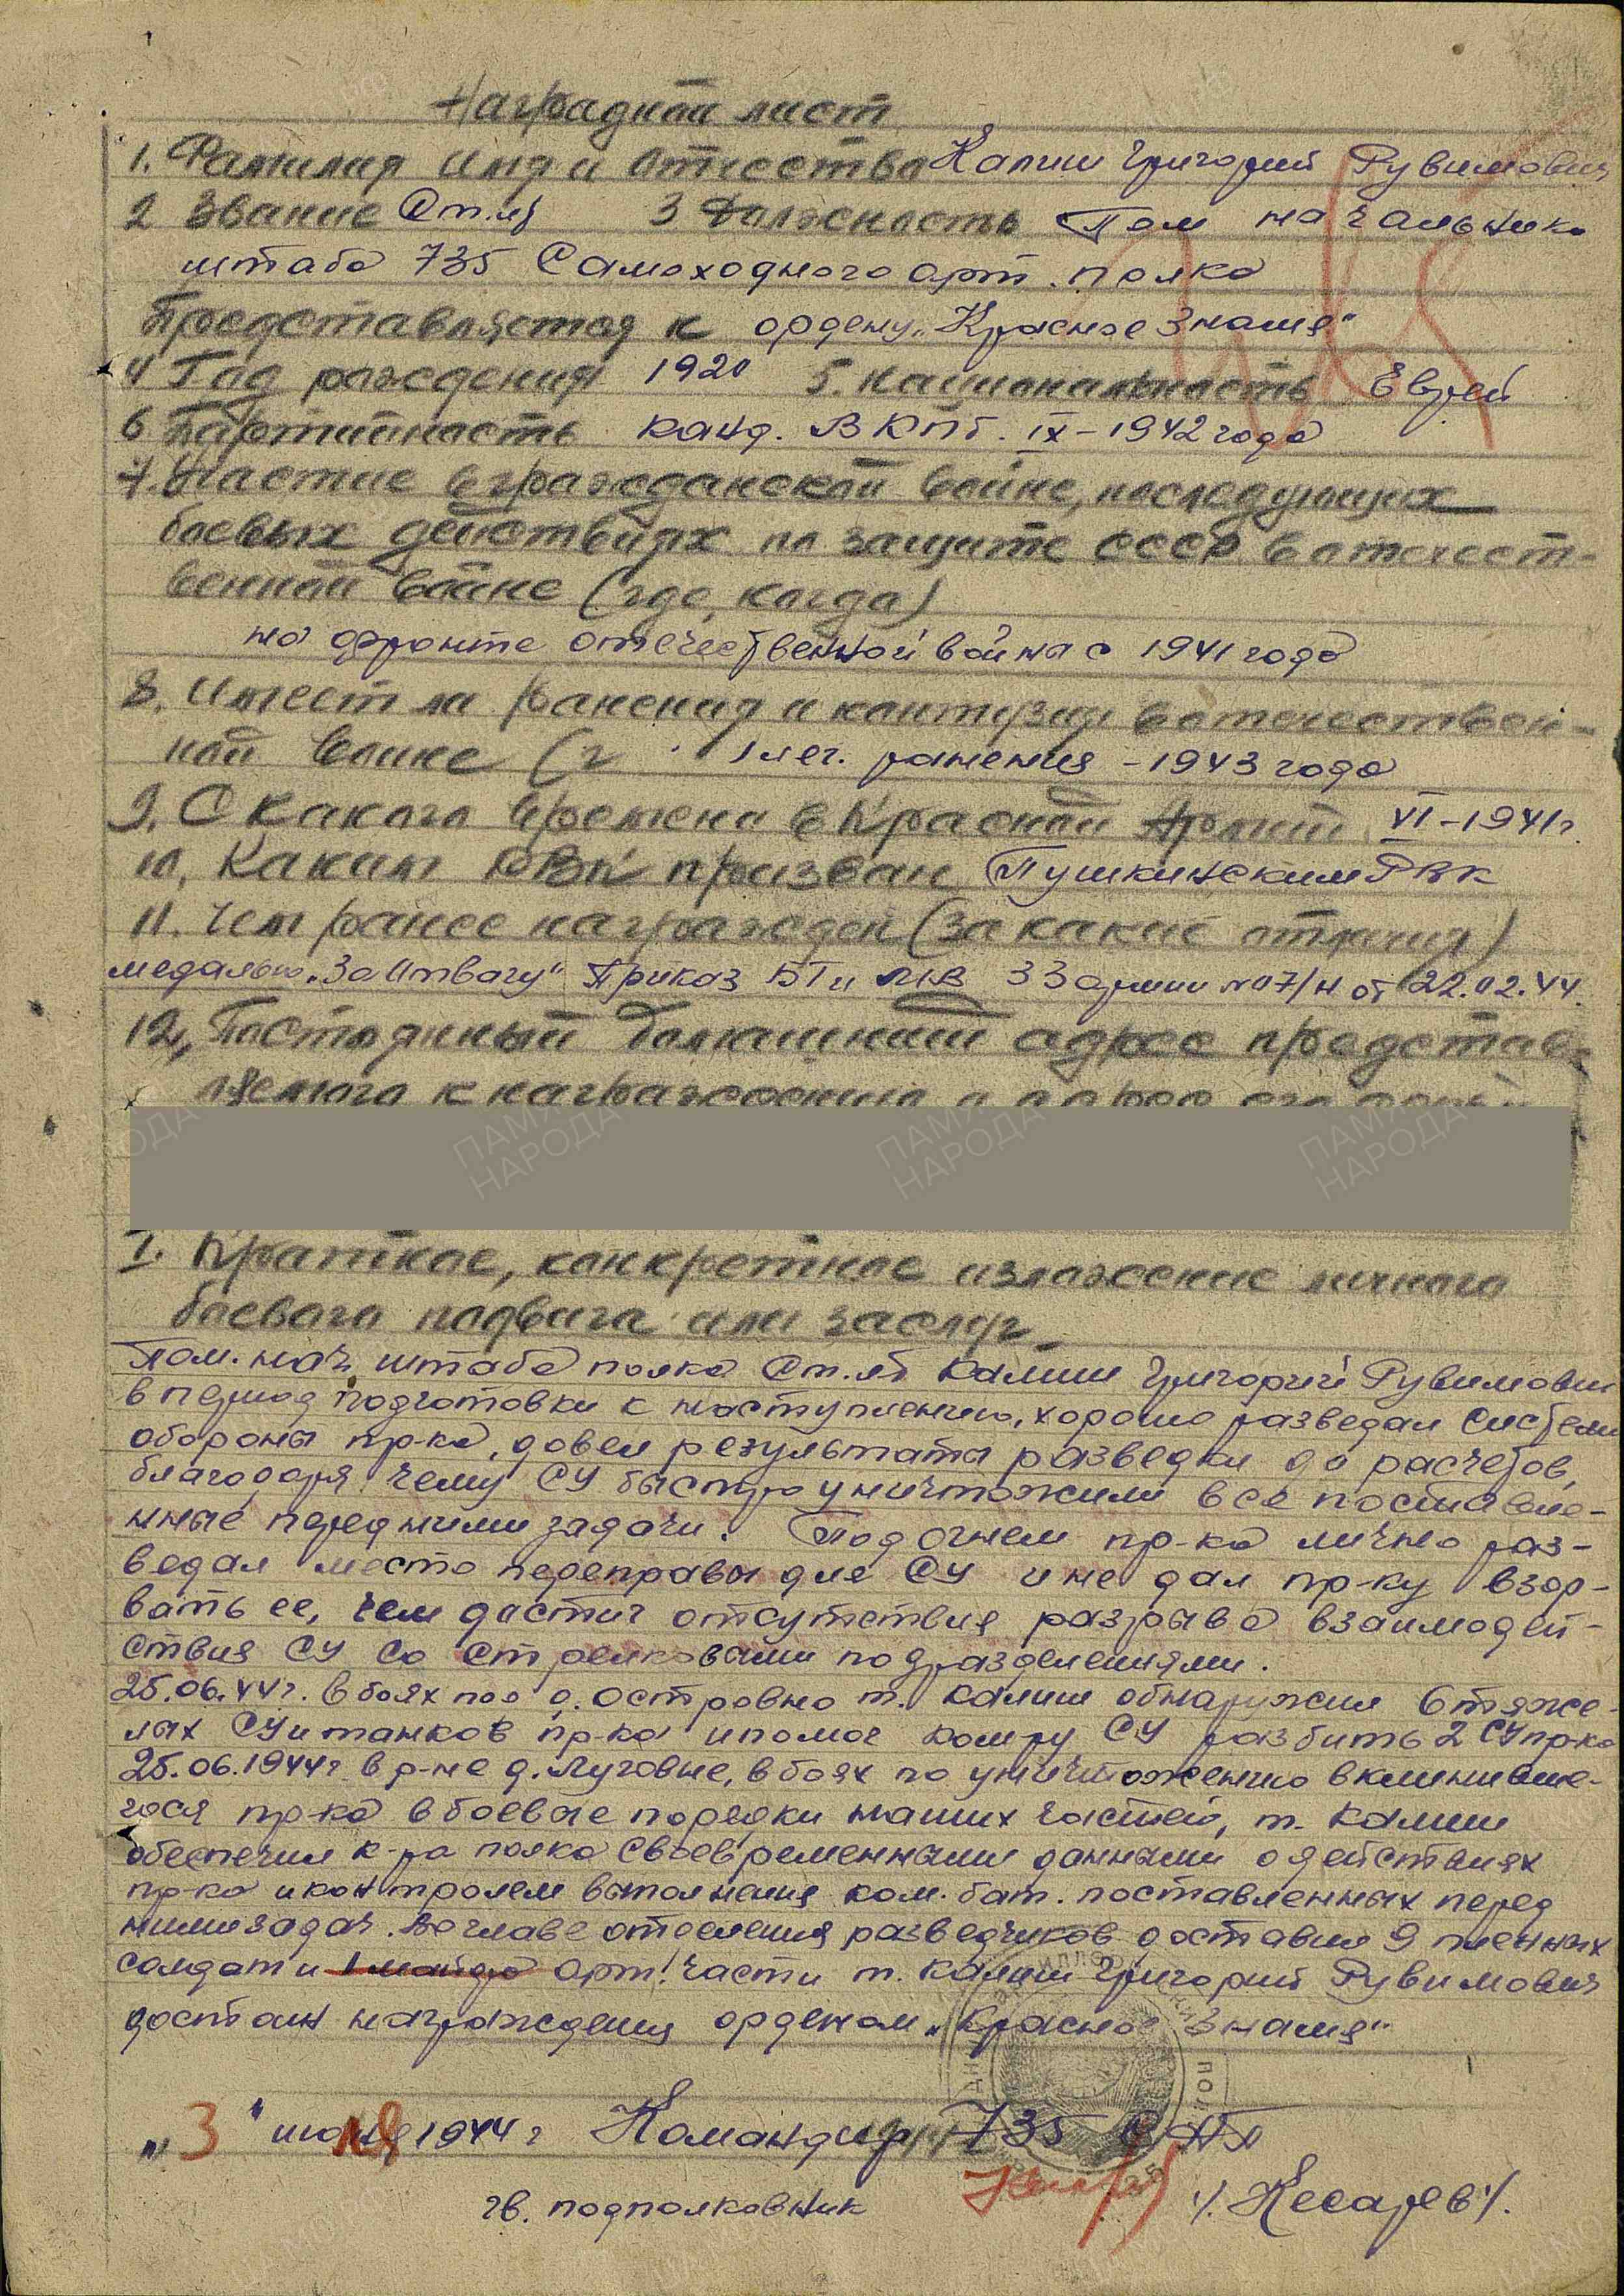 Наградной лист
1. Фамилия Имя и Отчество Калиш Григорий Рувимович
2 Звание Ст. л-т 3 Должность Пом начальника
штаба 735 Самоходного арт. полка
Представляется к ордену „Красное Знамя"
4 Год рождения 1920 5. Национальность Еврей
6 Партийность канд. ВКПб. IX-1942 года
7. Участие в гражданской войне, последующих
боевых действиях по защите СССР в отечест-
венной войне (где, когда)
на фронте отечественной война с 1941 года
8. Имеет ли ранения и контузии в отечествен-
ной войне (г 1 лег. ранения - 1943 года
9. С какого времени в Красной Армии VI-1941г.
10. Каким РВК призван Пушкинским РВК
11. Чем ранее награжден (за какие отличия)
медалью „За Отвагу" Приказ БТ и МВ 33 армии № 07/н от 22.02.44.
12. Постоянный домашний адрес представ-
ляемого к награждению и адрес его семьи
I. Краткое, конкретное изложение личного
боевого подвига или заслуг
Пом. нач. штаба полка Ст. л-т Калиш Григорий Рувимович
в период подготовки к наступлению, хорошо разведал систему
обороны пр-ка, довел результаты разведки до расчетов,
благодаря чему СУ быстро уничтожили все поставле-
нные перед ними задачи. Под огнем пр-ка лично раз-
ведал место переправы для СУ и не дал пр-ку взор-
вать ее, чем достиг отсутствия разрыва взаимодей-
ствия СУ со стрелковыми подразделениями.
25.06.44г. в боях под д. Островно т. Калиш обнаружил 6 тяже-
лых СУ и танков пр-ка и помог ком-ру СУ разбить 2 СУ пр-ка
25.06.1944г в р-не д. Луговые, в боях по уничтожению вклинивше-
гося пр-ка в боевые порядки наших частей, т. Калиш
обеспечил к-ра полка своевременными данными о действиях
пр-ка и контролем выполнения ком. бат. поставленных перед
ними задач. Во главе отделения разведчиков доставил 9 пленных
солдат и 1 майора арт. части т. Калиш Григорий Рувимович
достоин награждения орденом „Красное Знамя"
„3" июля 1944 г Командир 735 САП
гв. подполковник /. Кесарев /.